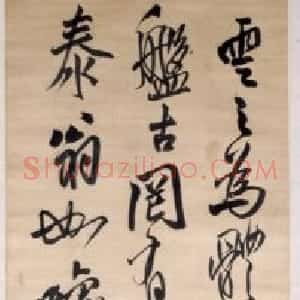 雲之為體
盤古罔有
泰翁如
Shufaziliao.com